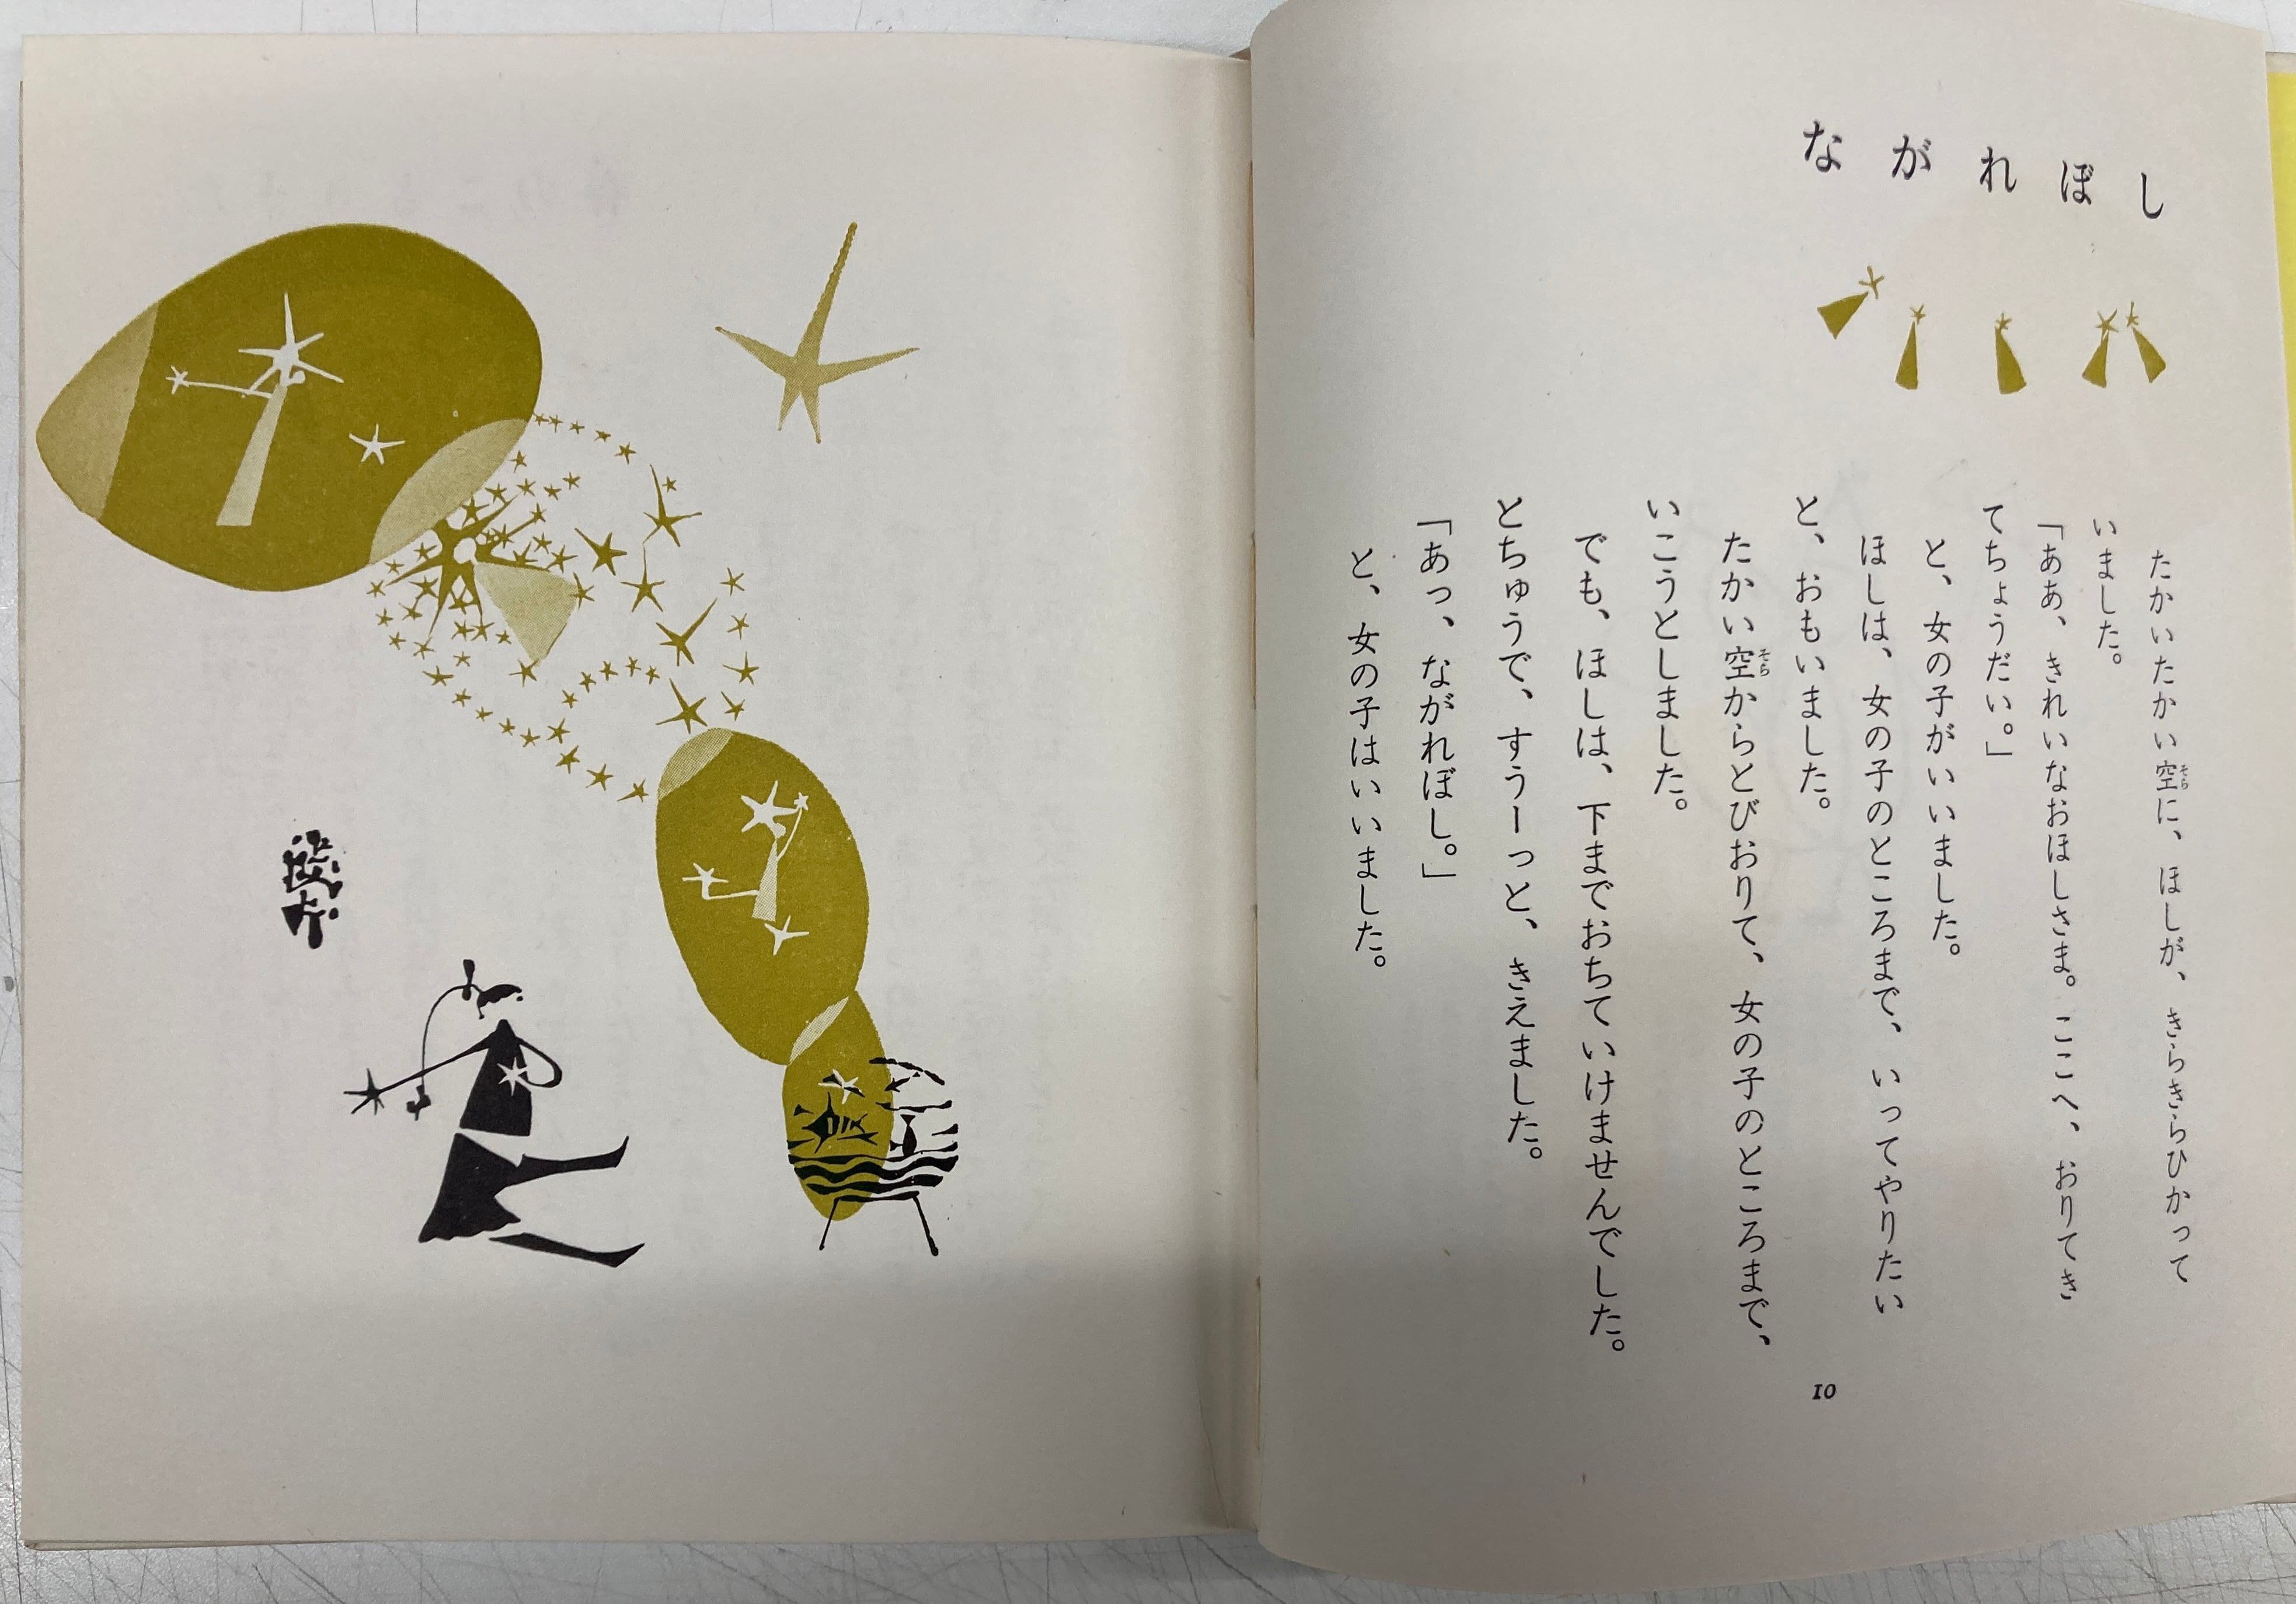 ながれぼし
たかいたかい空に、ほしが、きらきらひかって
いました。
「ああ、きれいなおほしさま。ここへ、おりてき
てちょうだい。」
と、女の子がいいました。
ほしは、女の子のところまで、いってやりたい
と、おもいました。
たかい空からとびおりて、女の子のところまで、
いこうとしました。
でも、ほしは、下までおちていけませんでした。
とちゅうで、すうーっと、きえました。
「あっ、ながれぼし。」
と、女の子はいいました。
10